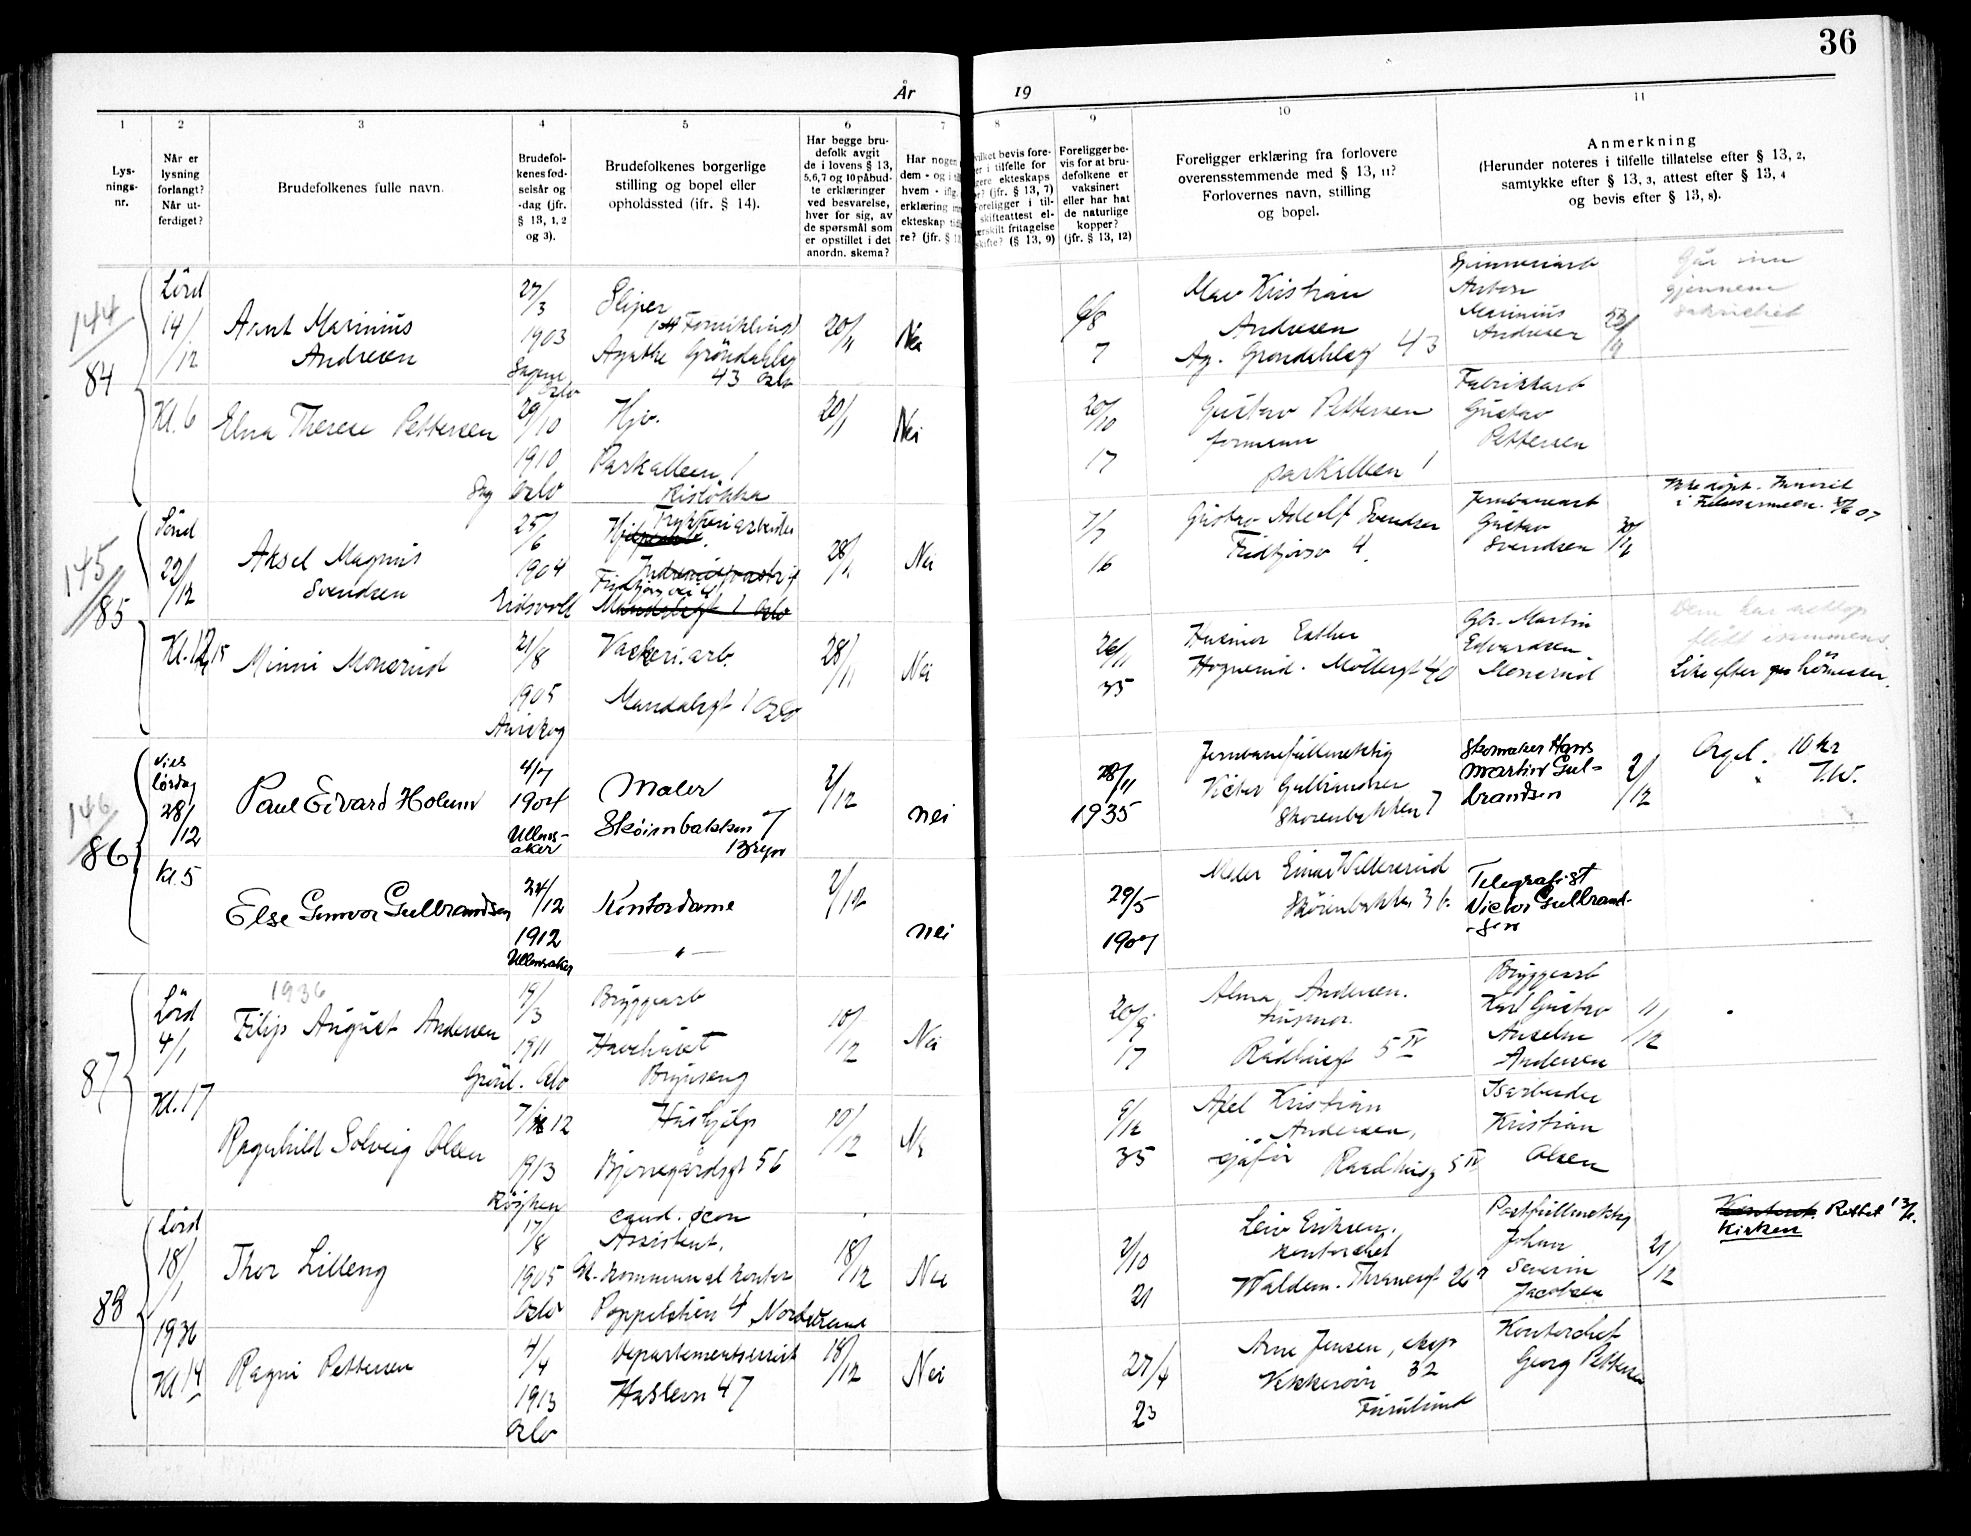 36
År 19
1 2 3 4 5 6 7 8 9 10 11
Lys-
nings-
nr.
Når er
lysning
forlangt?
Når ut-
ferdiget?
Brudefolkenes fulle navn.
Brudefol-
kenes fød-
selsår og
-dag (jfr.
§ 13, 1, 2
og 3).
Brudefolkenes borgerlige
stilling og bopel eller
opholdssted (ifr. § 14).
Har begge bru-
defolk avgit
de i lovens § 13,
5,6,7 og 10 påbud-
te erklæringer
ved besvarelse,
hver for sig, av
de spørsmål som
er opstillet i det
anordn. skema?
Har nogen
dem - og i
hvem - ifg.
erklæring
ekteskap tid
re? (jfr. § 13
vilket bevis fore-
er i tilfelle for
gere ekteskaps
r? (jfr. § 13, 7)
Foreligger i til-
skifteattest el-
ærskilt fritagelse
skifte? (§ 13, 9)
Foreligger be-
vis for at bru-
defolkene er
vaksinert
eller har hat
de naturlige
kopper?
(jfr. § 13, 12)
Foreligger erklæring fra forlovere
overensstemmende med § 13, 11?
Forlovernes navn, stilling
og bopel.
Anmerkning
(Herunder noteres i tilfelle tillatelse efter § 13, 2,
samtykke efter § 13, 3, attest efter § 13, 4
og bevis efter § 13, 8).
144
84
Lørd
14/
12
Kl. 6
Arnt Marinius
Andresen
27/
3
1903
Oslo
Sliper
Agathe Grøndahlsg
43 Oslo
20/
11
Nei
6/8
7
Kristian
Andresen
Ag. Grøndahlsg 43
Anton
Marinius
Andresen
Går inn
gjennem
sakristiet
Elna Therese Pettersen
29/
10
1910
Oslo
Hjv.
Parkalleen 1
Nei
20/
10
17
Gustav Pettersen
formann
Parkalleen 1
Fabrikkarb
Gustav
Pettersen
145
85
Sønd
22/
12
Kl. 12,15
Aksel Magnus
Svendsen
25/
6
1904
Eidsvoll
Mandalsgt 1 Oslo
28/
Nei
7/
7
16
Gustav Adolf Svendsen
Fridtjovsv 4
Jernbanearb
Gustav
Svendsen
Minni Monsrud
21/
8
1905
Aurskog
Vaskeri.arb.
Mandalsgt 1 Oslo
28/
11
Nei
26/
11
35
Husmor Esther
Hognerud. Møllergt 40
Gbr. Martin
Edvardsen
Monsrud
Like efter høimessen.
146
86
Vies
lørdag
28/
12
Kl. 5
Paul Edvard Holum
4/7
1904
Ullens-
aker
Maler
Skøienbakken 7
Bryn
2/
12
nei
28/
11
1935
Jernbanefullmektig
Victor Gulbrandsen
Skøienbakken 7
Skomaker Hans
Martin Gul-
brandsen
2/
12
Orgel. 10 kr
Else Gunvor Gulbrandsen
24/
12
1912
Ullensaker
Kontordame
— " —
2/
12
nei
29/5
1907
Maler Einar Willersrud
Skøienbakken 3 b.
Telegrafist
Victor Gulbrand-
-sen
87
Lørd
4/1
Kl. 17
1936
Filip August Andersen
19/
3
1911
Grünl. Oslo
Bryggearb
Havehuset
Brynseng
10/
12
Nei
20/
9
17
Alma Andersen.
husmor.
Rådhusgt 5 IV
Bryggearb
Karl Gustav
Anselm
Andersen
11/
12
Ragnhild Solveig Olsen
7/12
1913
Røyken
Hushjelp
Bjerregårdsgt 56
10/
12
Nei
9/
12
35
Axel Kristian
Andersen,
sjåfør Raadhusg 5 IV
Isarbeider
Kristian
Olsen
88
Lørd
18/
1
1936
Kl 14
Thor Lilleng
17/
8
1905
Oslo
cand. øcon
Assistent.
kommunal kontor
Poppelstien 4 Nordstrand
18/
12
Nei
2/
10
21
Leiv Eriksen.
kontorchef
Waldem. Thranesgt 26
Postfullmektig
Johan
Severin
Jacobsen
21/
12
Kontoret. Rettet 13/1.
Kirken
Ragni Pettersen
4/
4
1913
Oslo
Haslevn 47
18/
12
Nei
27/4
23
Arne Jensen, eksp
Vekkerøvn 32
Furulund
Kontorchef
Georg Pettersen